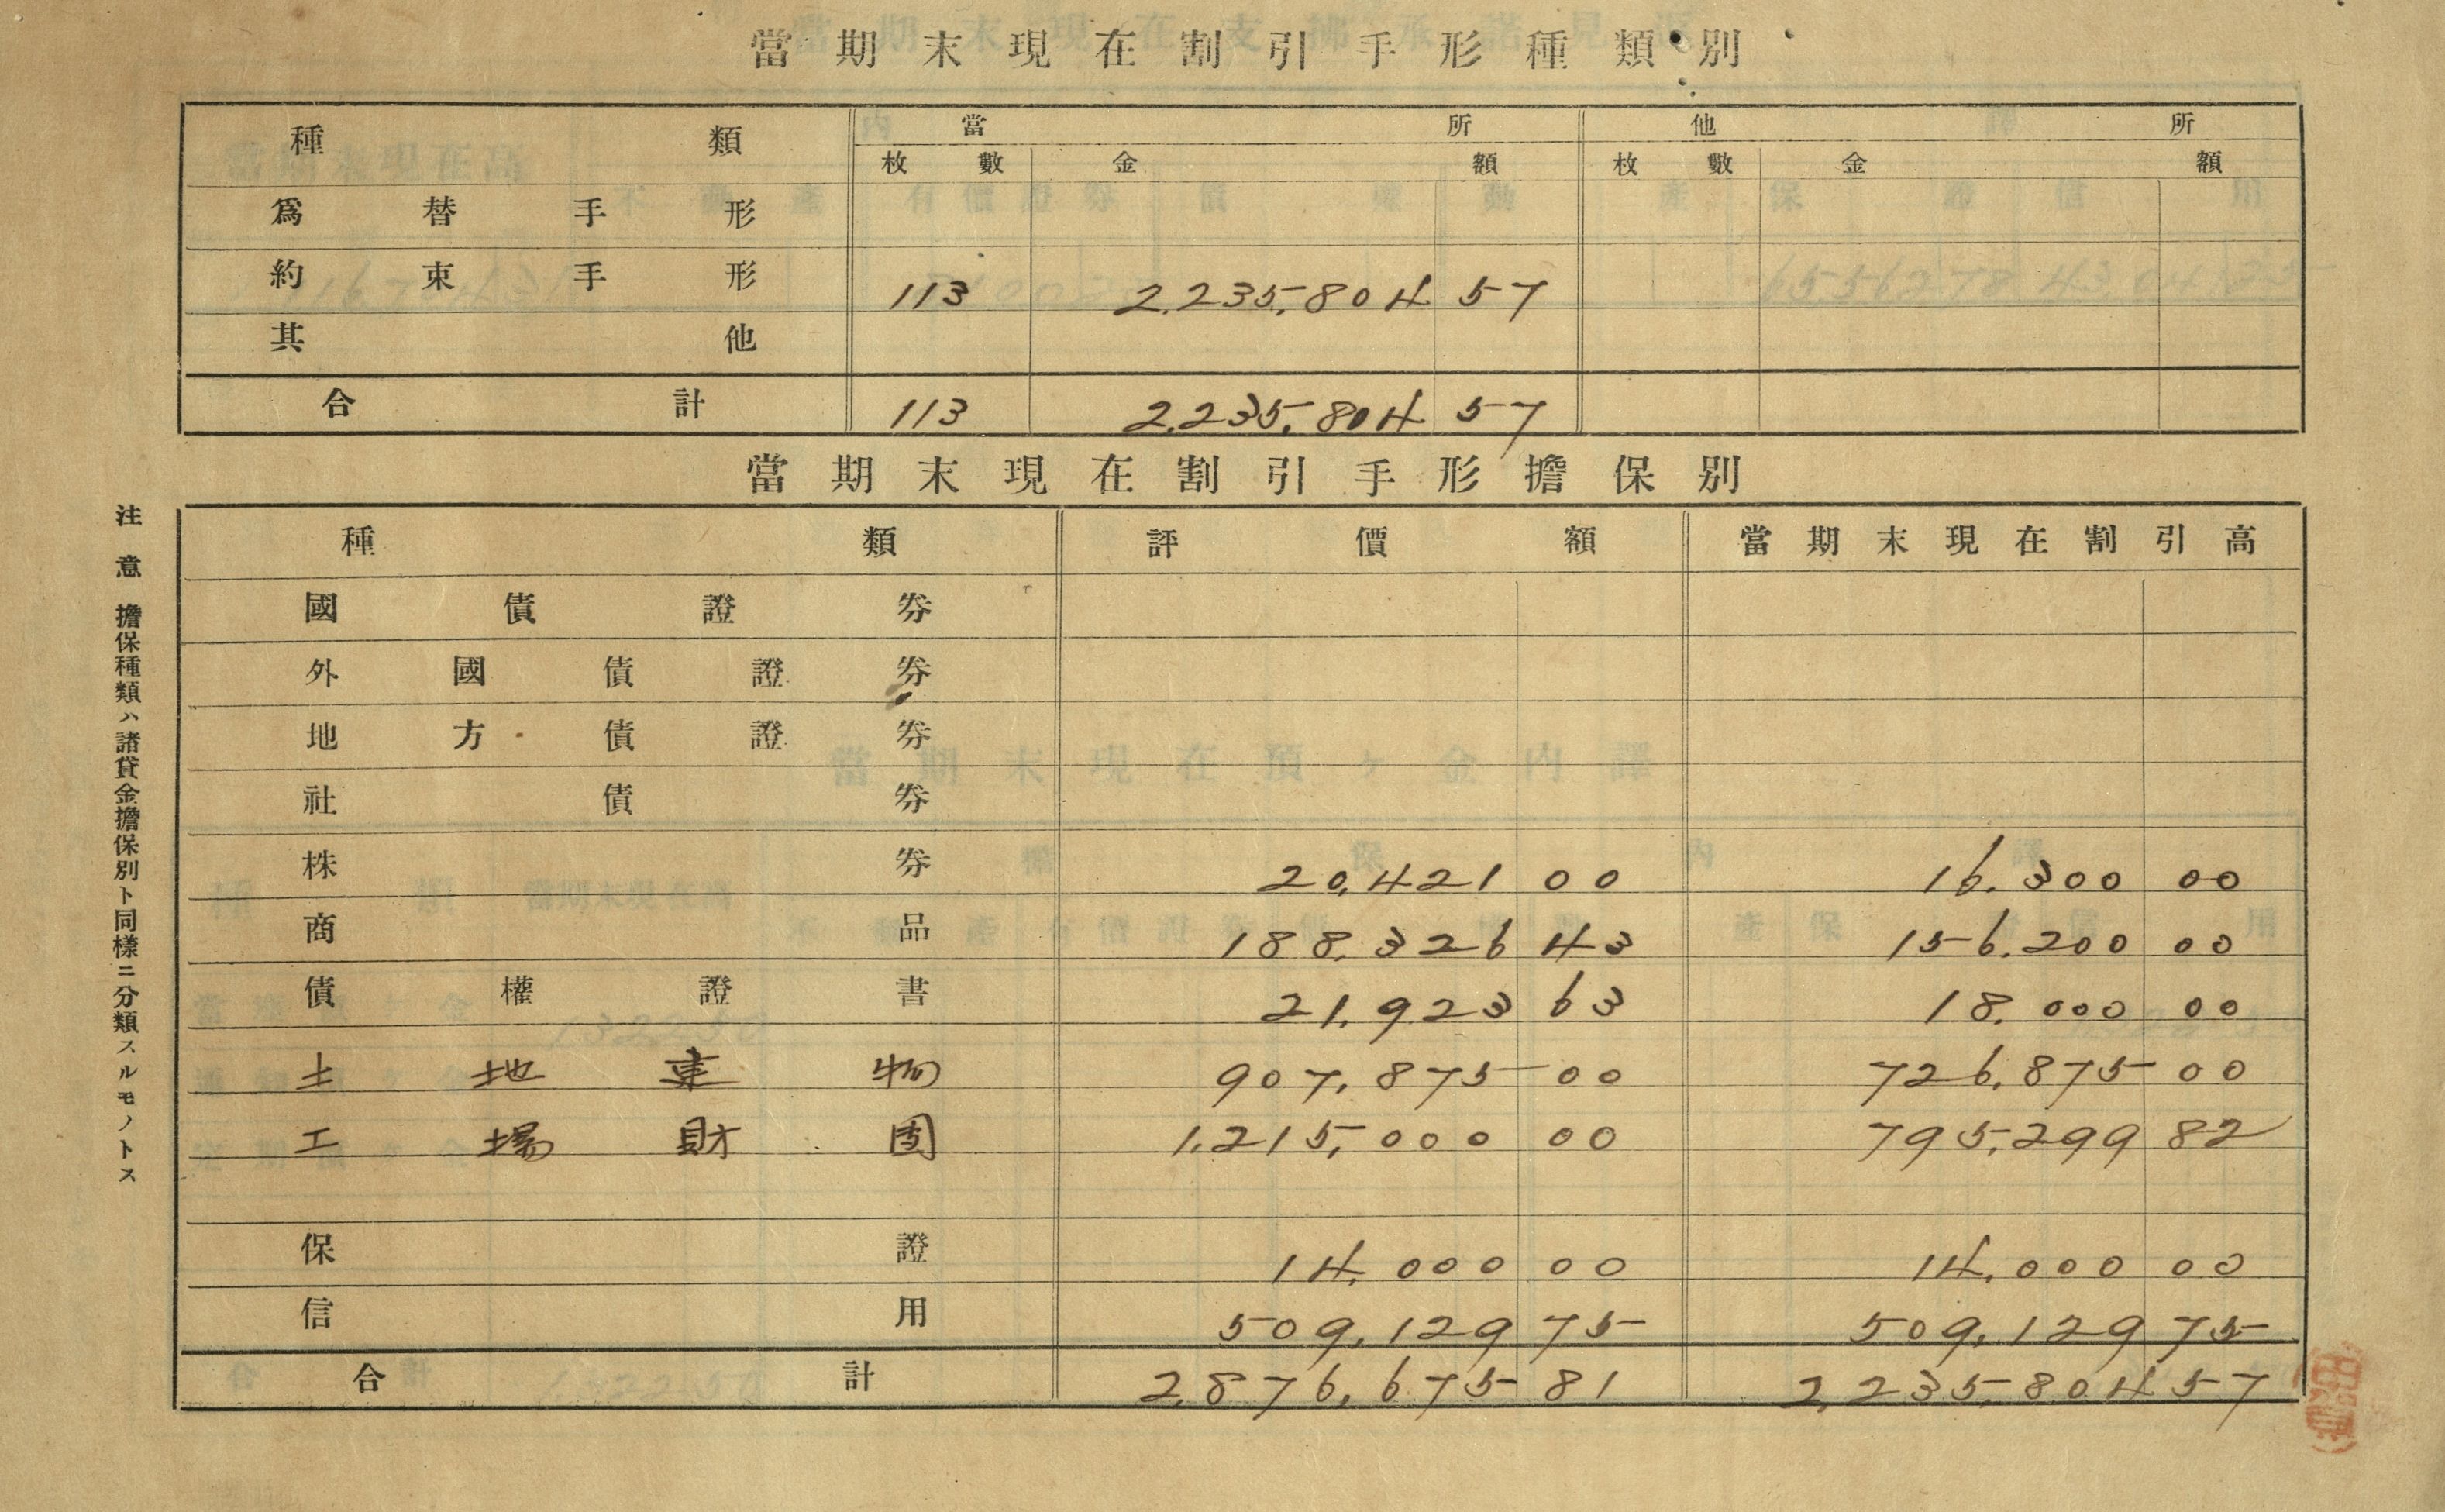 當期末現在割引手形種類別
種類 當所 他所
枚數 金額 枚數 金額
爲替手形
約束手形 113 2,235,804 57
其他
合計 113 2,235,804 57
當期末現在割引手形擔保別
種類 評價額 當期末現在割引高
國債證券
外國債證券
地方債證券
社債券
株券 20,421 00 16,300 00
商品 188,326 43 156,200 00
債權證書 21,923 63 18,000 00
土地建物 907,875 00 726,875 00
工場財団 1,215,000 00 795,299 82
保證 14,000 00 14,000 00
信用 509,129 75 509,129 75
合計 2,876,675 81 2,235,804 57
注意 擔保種類ハ諸貸金擔保別ト同樣ニ分類スルモノトス